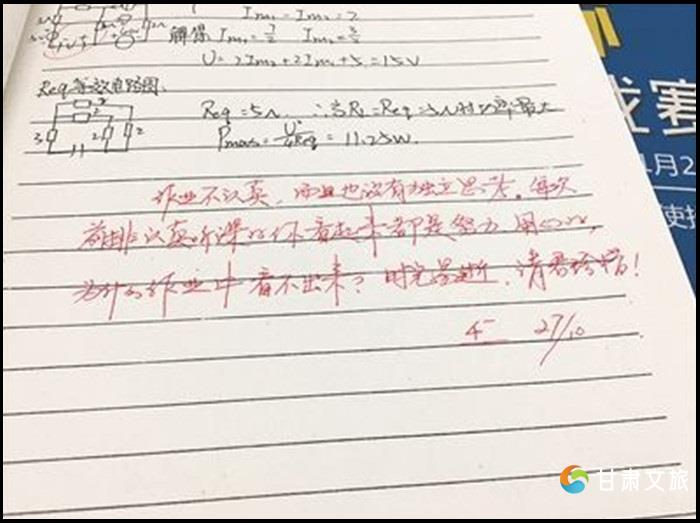 Im1 - Im2 = 2
解得 Im1 = 7/2 Im2 = 3/2
U = 2Im1 + 2Im2 + 5 = 15V
Req等效电路图
Req = 5Ω ∴当RL = Req = 5Ω时功率最大
Pmax = U²/4Req = 11.25W.
3 2 2
作业不认真，而且也没有独立思考。每次
前排认真听课的你看起来都是努力、用心的，
为什么作业中看不出来？时光易逝，请君珍惜！
27/10
战赛
1月2
使指
甘肃文旅